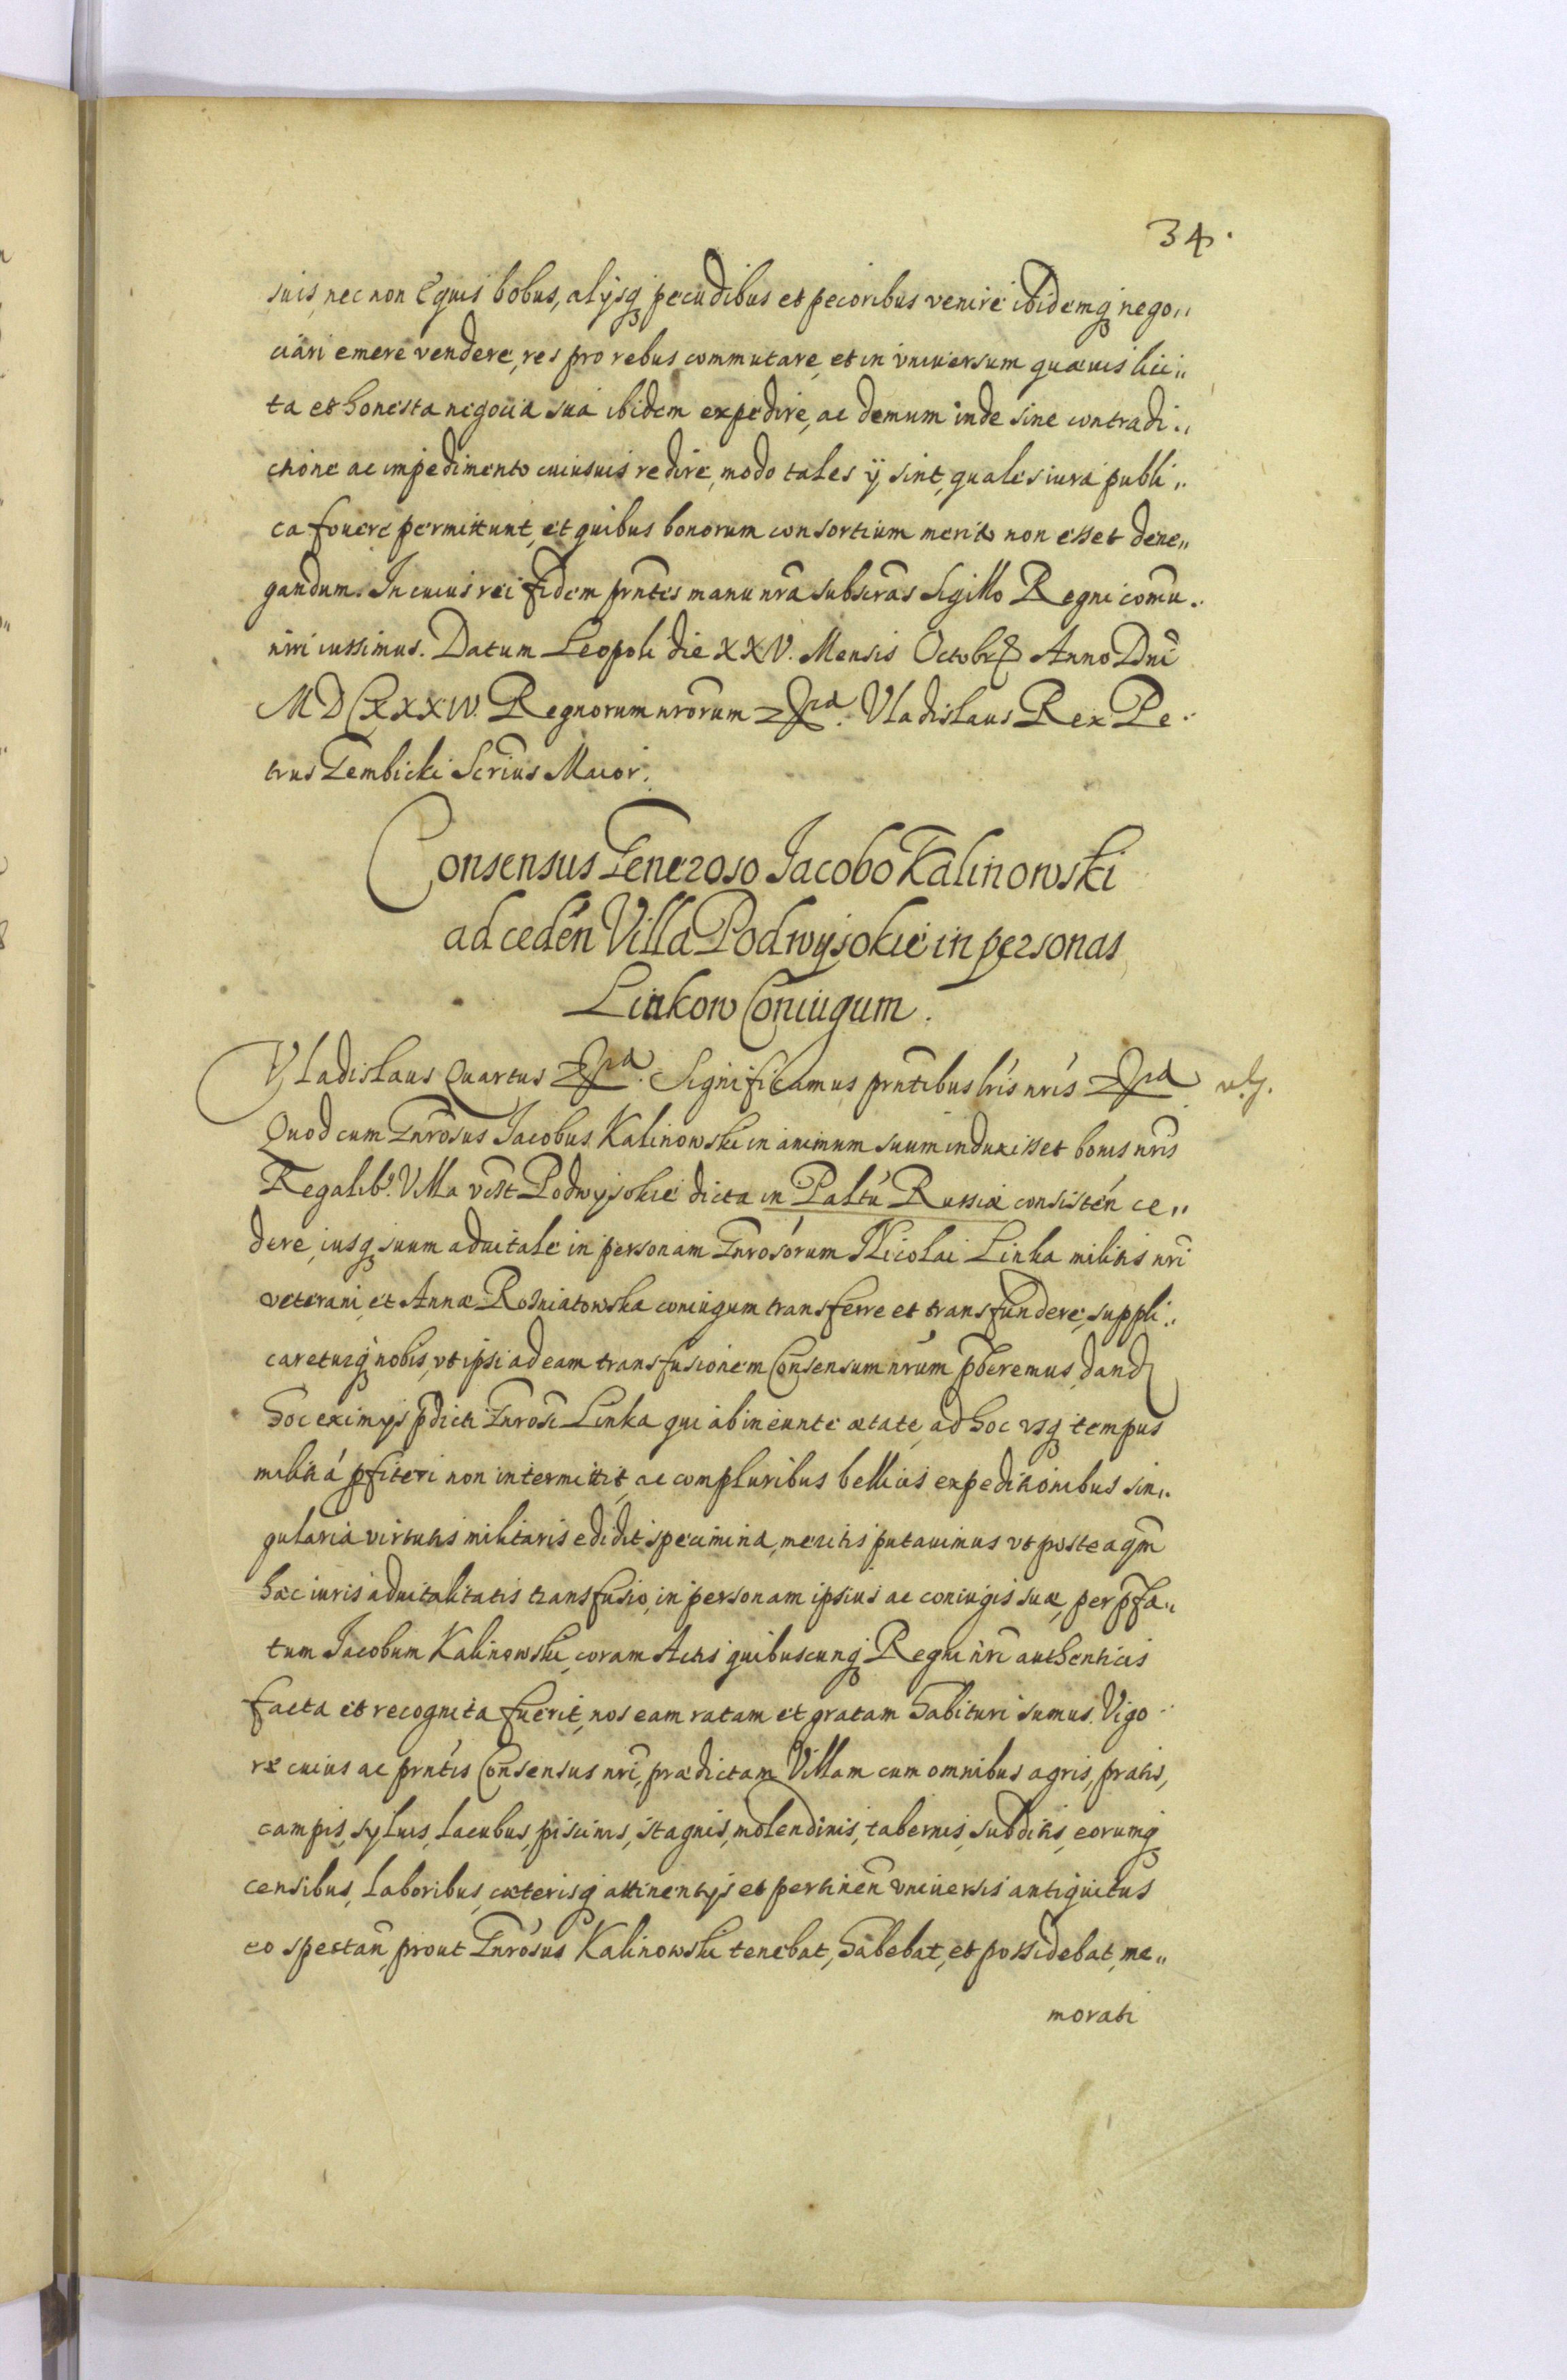 34.
suis, nec non equis bobus, alijsq pecudibus et pecoribus venire ibidemq nego„
ciari emere vendere, res pro rebus commutare, et in vniuersum quæuis lici„
ta et honesta negocia sua ibidem expedire, ac demum inde sine contradi„
ctione ac impedimento cuiusuis redire, modo tales ij sint, quales iura publi„
ca fouere permittunt, et quibus bonorum consortium merito non esset dene„
gandum. In cuius rei fidem pñtes manu ñra subscrās Sigillo Regni comū„
niri iussimus. Datum Leopoli die XXV. Mensis Octobr Anno Dñi
MDCXXXIV. Regnorum ñrorum &ra. Vladislaus Rex Pe„
trus Gembicki Scrius Maior.
Consensus Generoso Jacobo Kalinowski
ad ceden Villa Podwysokie in personas
Linkow Coniugum.
Vladislaus Quartus &ra. Significamus pñtibus lris nris &ra
Quod cum Gnrosus Jacobus Kalinowski in animum suum induxisset bonis nris
Regalib9 Villa vclt Podwysokie dicta in Paltu Russiæ consisten ce„
dere, iusq suum aduitale in personam Gnrosorum Nicolai Linka militis nri
veterani, et Annæ Rosniatowska coniugum transferre et transfundere, suppli„
careturq nobis, vt ipsi ad eam transfusionem Consensum nrum pberemus, dand
hoc eximijs pdicti Gnrosi Linka qui ab ineunte ætate, ad hoc vsq tempus
militiá pfiteri non intermittit, ac compluribus bellicis expeditionibus sin„
gularia virtutis militaris edidit specimina, meritis putauimus vt posteaqm
hæc iuris aduitalitatis transfusio, in personam ipsius ac coniugis suæ, per pfa„
tum Jacobum Kalinowski, coram Actis quibuscunq Regni nri authenticis
facta et recognita fuerit, nos eam ratam et gratam habituri sumus. Vigo
re cuius ac pñtis Consensus nri, prædictam Villam cum omnibus agris, pratis,
campis, syluis, lacubus, piscinis, stagnis, molendinis, tabernis, subditis, eorumq
censibus, laboribus, cæterisq attinentijs et pertinen vniuersis antiquitus
eo spectan, prout Gnrosus Kalinowski tenebat, habebat, et possidebat, me„
morati